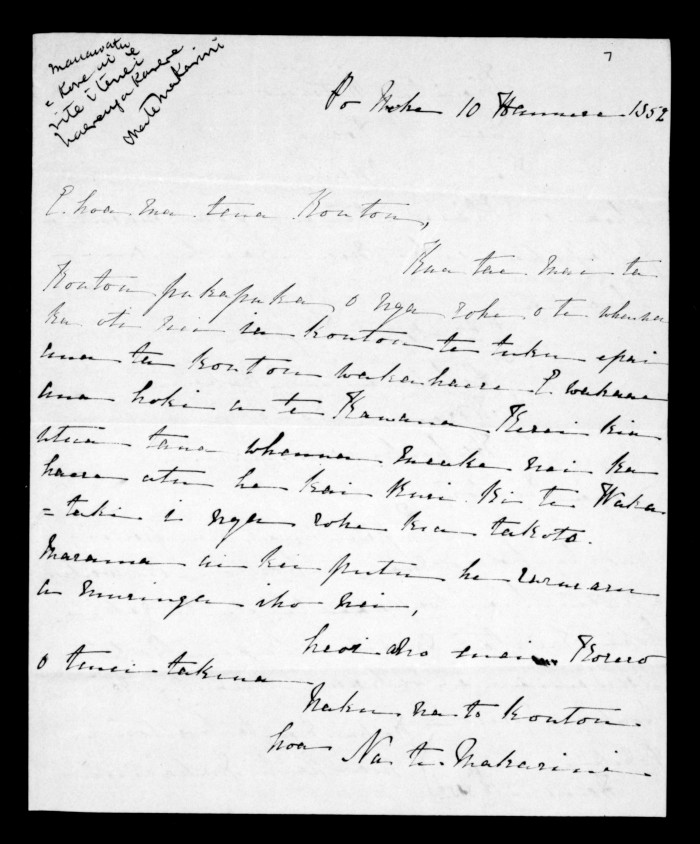 Manawatu
= Kore ui e
rite i tenei
haerenga Karere
Mate Makarini
7
Po Neke 10 Hanuere 1852
E hoa ma tena Koutou,
Kua tae mai ta
Koutou pukapuka o nga rohe o te whenua
ka oti nei ia koutou te tuku epai
ana ta koutou wakahaere E wakaae
ana hoki a te Kawana Kerei kia
utua taua whenua meake nei ka
haere atu he kai Ruri ki te Waka
= taki i nga rohe kia takoto
Marama ai kei putu he raruraru
a muringa iho nei,
heoi ano enei Korero
o tenei takiwa
Naku na to koutou
hoa Na te Makarini